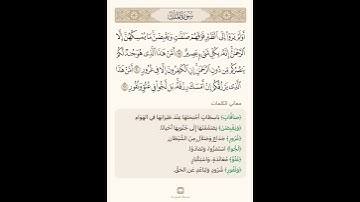 سورة الملك
أَوَلَمْ يَرَوْا إِلَى الطَّيْرِ فَوْقَهُمْ صَافَّاتٍ وَيَقْبِضْنَ مَا يُمْسِكُهُنَّ إِلَّا
الرَّحْمَٰنُ إِنَّهُ بِكُلِّ شَيْءٍ بَصِيرٌ ۝ أَمَّنْ هَٰذَا الَّذِي هُوَ جُندٌ لَّكُمْ
يَنصُرُكُم مِّن دُونِ الرَّحْمَٰنِ إِنِ الْكَافِرُونَ إِلَّا فِي غُرُورٍ ۝ أَمَّنْ هَٰذَا
الَّذِي يَرْزُقُكُمْ إِنْ أَمْسَكَ رِزْقَهُ بَل لَّجُّوا فِي عُتُوٍّ وَنُفُورٍ ۝
معاني الكلمات
﴿صَافَّاتٍ﴾ بَاسِطَاتٍ أَجْنِحَتَهَا عِنْدَ طَيَرَانِهَا فِي الهَوَاءِ.
﴿وَيَقْبِضْنَ﴾ يَضْمُمْنَهَا إِلَى جُنُوبِهَا أَحْيَانًا.
﴿غُرُورٍ﴾ خِدَاعٍ وَضَلَالٍ مِنَ الشَّيْطَانِ.
﴿لَجُّوا﴾ اسْتَمَرُّوا، وَتَمَادَوْا.
﴿عُتُوٍّ﴾ مُعَانَدَةٍ، وَاسْتِكْبَارٍ.
﴿وَنُفُورٍ﴾ شُرُودٍ وَتَبَاعُدٍ عَنِ الحَقِّ.